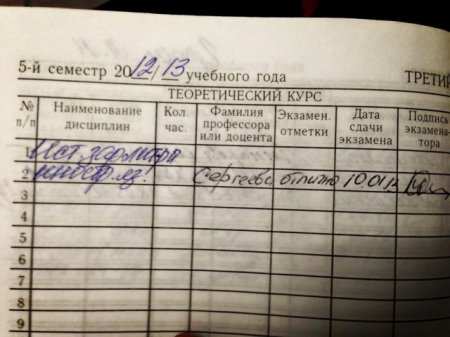 5-й семестр 2012/13 учебного года ТРЕТИЙ
ТЕОРЕТИЧЕСКИЙ КУРС
№ п/п Наименование дисциплин Кол. час. Фамилия профессора или доцента Экзамен. отметки Дата сдачи экзамена Подпись экзамена-тора
1 Ист
2 иностр. яз. Сергеева отлично 10.01.13
3
4
5
6
7
8
9